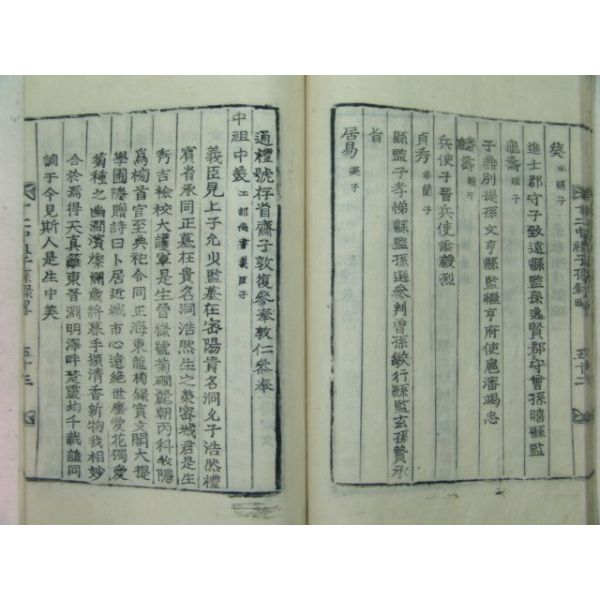 奘 永瑛子
進士郡守子致遠縣監孫逸賢郡守曾孫瞎縣監
龜壽 瑛子
子鼎別提孫文亨縣監繼亨府使扈藩謁忠
麟壽
兵使子晉兵使謚毅烈
貞秀 蘭子
縣監子孝悌縣監孫選參判曾孫敏行縣監玄孫贊承
旨
居易 瑛子
通禮號存省齋子敦復參奉敦仁參奉
中祖中發 工部尙書義臣子
義臣見上子允中監墓在密陽貴名洞允子浩然禮
賓省丞同正墓在貴名洞浩然生之榮密城君是生
秀吉檢校大護軍是生晉祿號菊磵麗朝丙科牧隱
爲栒首官至典祀令同正海東龍榜錄寶文閣大提
學圃隱贈詩曰卜居近城市心遠絶世塵愛花獨愛
菊種之幽澗濱燦爛歲將暮手擷清香新物我相妙
合於焉得天眞籬東晉淵明澤畔楚靈均千載誰同
調于今見斯人是生中美